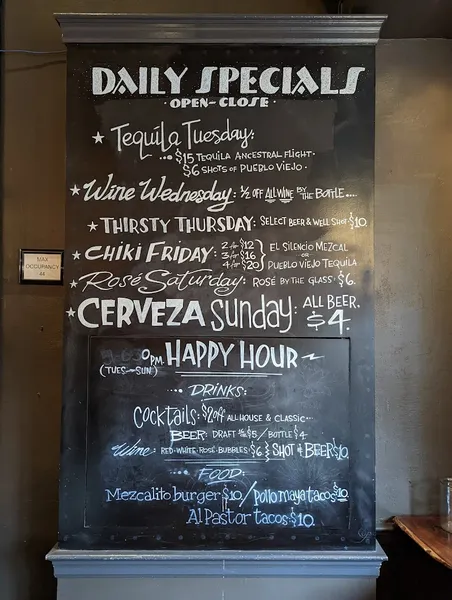 DAILY SPECIALS
· OPEN-CLOSE ·
★ Tequila Tuesday:
$15 TEQUILA ANCESTRAL FLIGHT·
$6 SHOTS OF PUEBLO VIEJO·
★ Wine Wednesday: ½ OFF ALL WINE BY THE BOTTLE....
★ THIRSTY THURSDAY: SELECT BEER & WELL SHOT·$10.
★ CHIKI FRIDAY: 2 for $12
3 for $16
4 for $20
EL SILENCIO MEZCAL
OR
PUEBLO VIEJO TEQUILA
★ Rosé Saturday: ROSÉ BY THE GLASS: $6.
★ CERVEZA Sunday: ALL BEER.
$4.
MAX
OCCUPANCY
PM. HAPPY HOUR
(TUES-SUN)
DRINKS:
Cocktails: $2 off ALL HOUSE & CLASSIC
BEER: DRAFT $5/BOTTLE $4
Wine: RED·WHITE·ROSÉ·BUBBLES·$6 SHOT & BEER $10
FOOD:
Mezcalito burger $10/Pollo maya tacos $10
Al Pastor tacos·$10